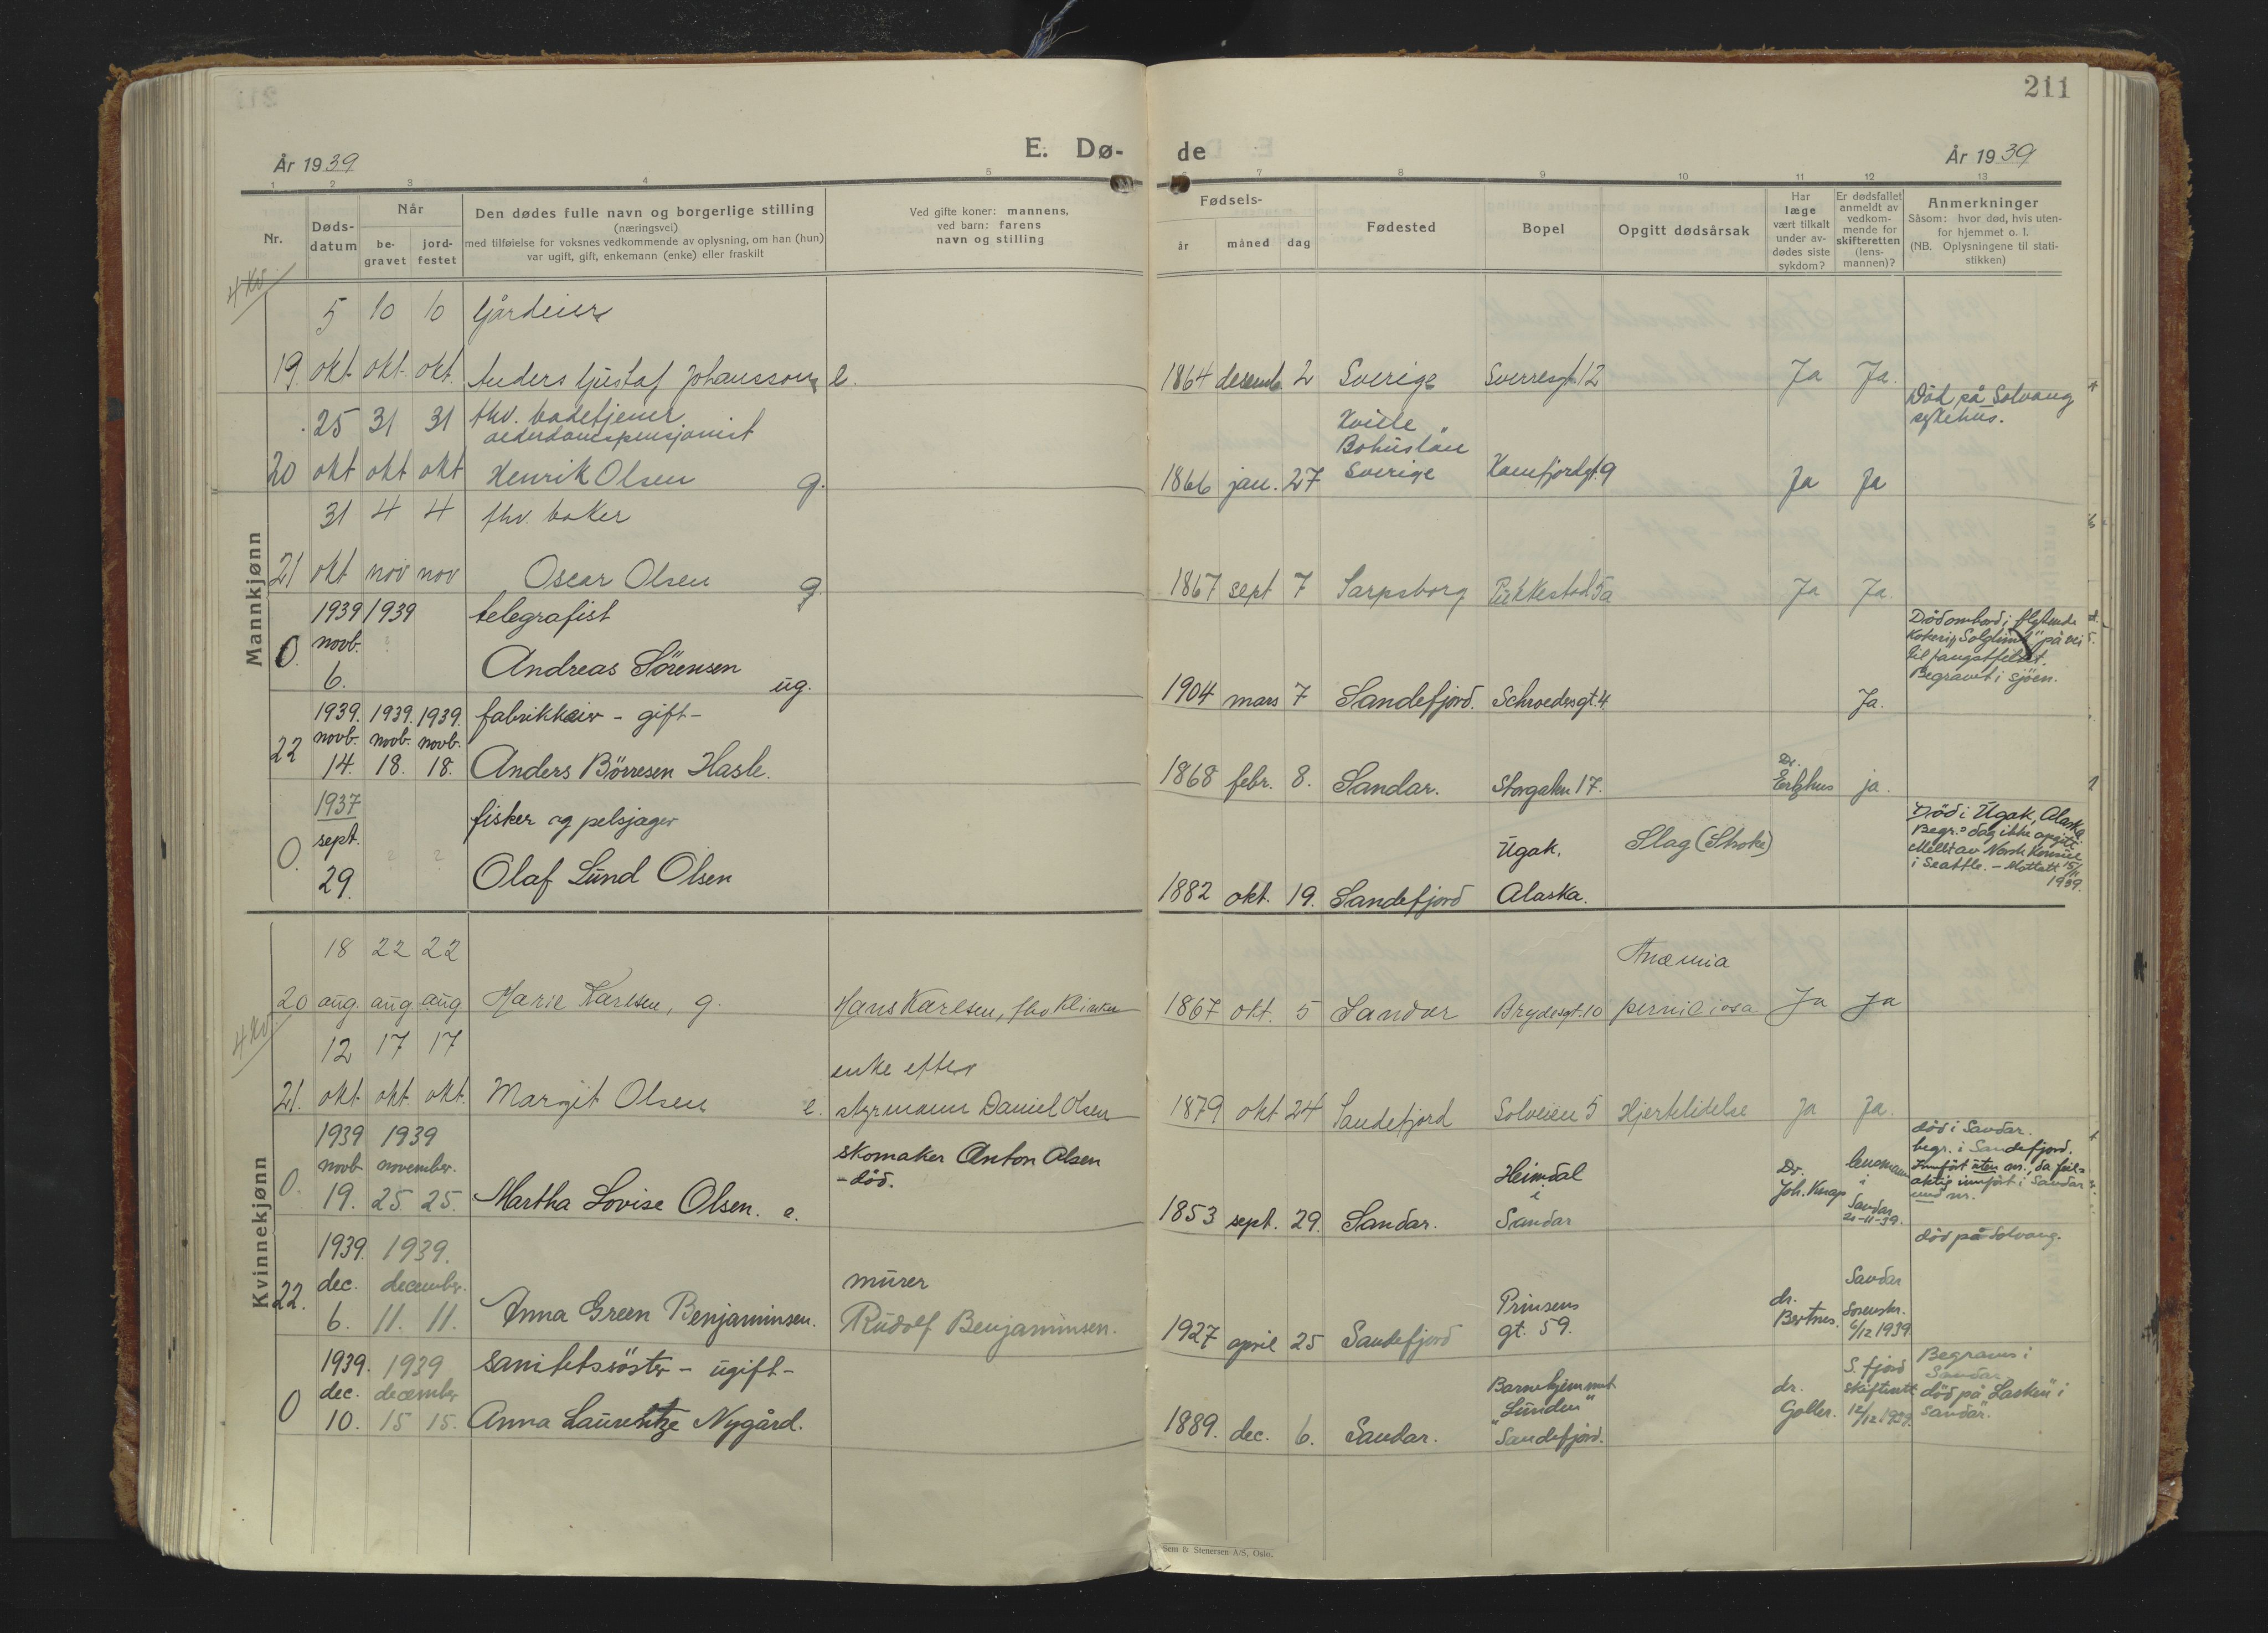 211
E. Dø- de
År 1939
År 1939
1 2 3 4 5 7 8 9 10 11 12 13
Nr.
Døds-
datum
Når
be-
gravet
jord-
festet
Den dødes fulle navn og borgerlige stilling
(næringsvei)
med tilføielse for voksnes vedkommende av oplysning, om han (hun)
var ugift, gift, enkemann (enke) eller fraskilt
Ved gifte koner: mannens,
ved barn: farens
navn og stilling
Fødsels-
år måned dag
Fødested
Bopel
Opgitt dødsårsak
Har
læge
vært tilkalt
under av-
dødes siste
sykdom?
Er dødsfallet
anmeldt av
vedkom-
mende for
skifteretten
(lens-
mannen)?
Anmerkninger
Såsom: hvor død, hvis uten-
for hjemmet o. l.
(NB. Oplysningene til stati-
stikken)
4 kv
Mannkjønn
5 10 10 Gårdeier
19. okt. okt. okt. Anders Gustaf Johansson e.
1864 desemb. 2 Sverige Sverresgt. 12 Ja Ja.
25 31 31 fhv. badetjener
alderdomspensjonist
20 okt okt okt Henrik Olsen g.
Kville
Bohuslän
1866 jan. 27 Sverige Kamfjordgt. 9 Ja Ja
Död på Solvang
sykehus.
31 4 4 fhv. baker
21 okt nov nov Oscar Olsen g.
1867 sept 7 Sarpsborg Pukkestad 5a Ja Ja.
1939 1939 telegrafist
0. novb. ?
6. Andreas Sörensen ug.
1904 mars 7 Sandefjord. Schroedersgt. 4. Ja.
Död ombord i flytende
kokeri „Solglimt" på vei
til fangstfeltet.
Begravet i sjöen.
1939. 1939. 1939. fabrikkeier - gift -
22 novb. novb. novb.
14. 18. 18. Anders Börresen Hasle.
1868 febr. 8. Sandar. Storgaten 17. Dr. ja.
1937 fisker og pelsjager
0. sept. ? ?
29. Olaf Lund Olsen
1882 okt. 19. Sandefjord Ugak, Alaska. Slag (Stroke)
Död i Ugak, Alaska
Begr.s dag ikke opgitt
Meldt av Norsk Konsul
i Seattle. - Mottatt 15/11
1939.
4 kv
Kvinnekjønn
18 22 22
20 aug. aug. aug Marie Karlsen, g. Hans Karlsen, fhv
1867 okt. 5 Sandar Brydesgt. 10 Anæmia
perniciosa Ja Ja
12 17 17 enke efter
21. okt. okt. okt. Margit Olsen e. styrmann Daniel Olsen
1879 okt 24 Sandefjord Solveien 5 Hjertelidelse Ja Ja.
1939 1939
0. novb. november.
19. 25. 25. Martha Lovise Olsen. e.
skomaker Anton Olsen
- död.
1853 sept. 29. Sandar. Heimdal
i
Sandar
Dr.
Joh. Knap
lensmann
i
Sandar
21-11-39.
död i Sandar.
begr. i Sandefjord.
Innfört uten nr., da feil-
aktig innfört i Sandar
med nr.
1939. 1939.
22. dec. december.
6. 11. 11. Anna Green Benjaminsen.
murer
Rudolf Benjaminsen.
1927 april 25 Sandefjord Prinsens
gt. 59.
dr.
Bertnes.
Sandar
Sorenskr.
6/12 1939
död på Solvang.
1939. 1939 sanitetssöster - ugift -
0 dec. december
10. 15 15. Anna Laurentze Nygård.
1889. dec. 6. Sandar.
Barnehjemmet
"Lunden"
Sandefjord.
dr.
S. fjord
skifterett
12/12 1939.
Begraves i
Sandar
död på "Lasken" i
Sandar.
Sem & Stenersen A/S, Oslo.